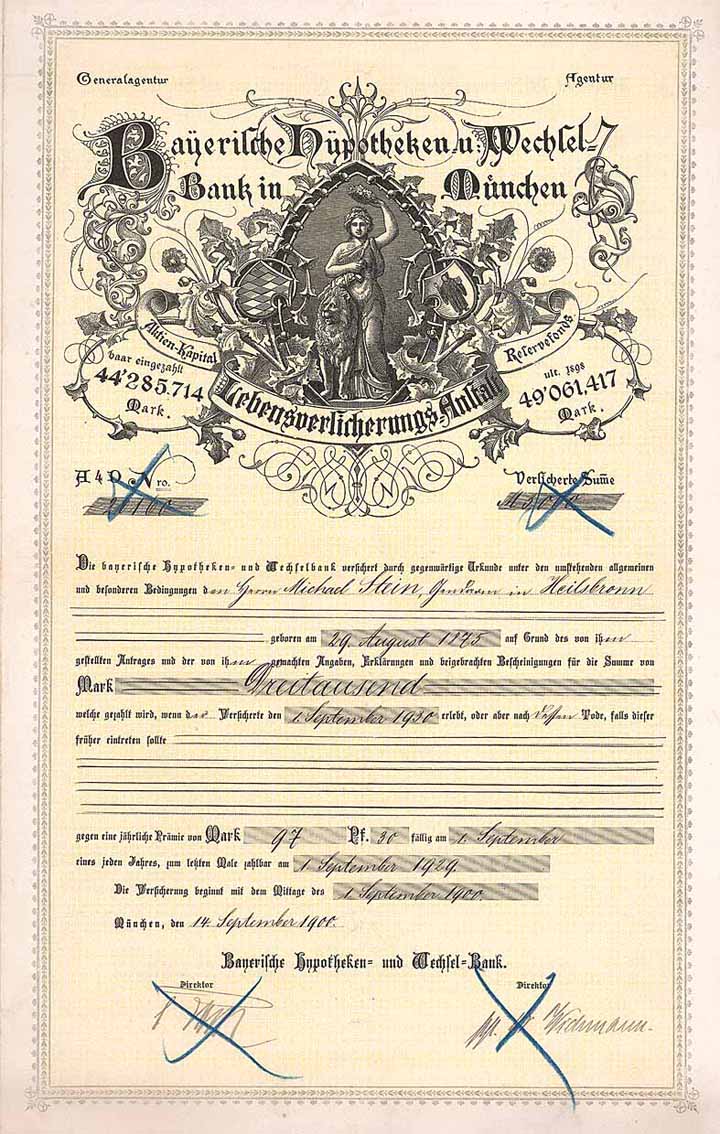 Generalagentur Agentur
Bayerische Hypotheken u. Wechsel-
Bank in München
Aktien-Kapital
baar eingezahlt
44'285.714
Mark.
Reservefonds
ult. 1898
49'061,417
Mark.
Lebensversicherungs-Anstalt
Nro. Versicherte Sume
Die bayerische Hypotheken- und Wechselbank versichert durch gegenwärtige Urkunde unter den umstehenden allgemeinen
und besonderen Bedingungen den Herrn Michael Stein, Gendarm in Heilsbronn
geboren am 29. August 1875 auf Grund des von ihm
gestellten Antrages und der von ihm gemachten Angaben, Erklärungen und beigebrachten Bescheinigungen für die Summe von
Mark Dreitausend
welche gezahlt wird, wenn der Versicherte den 1. September 1930 erlebt, oder aber nach dessen Tode, falls dieser
früher eintreten sollte
gegen eine jährliche Prämie von Mark 97 Pf. 30 fällig am 1. September
eines jeden Jahres, zum letzten Male zahlbar am 1. September 1929.
Die Versicherung beginnt mit dem Mittage des 1. September 1900.
München, den 14. September 1900.
Bayerische Hypotheken- und Wechsel-Bank.
Direktor Direktor